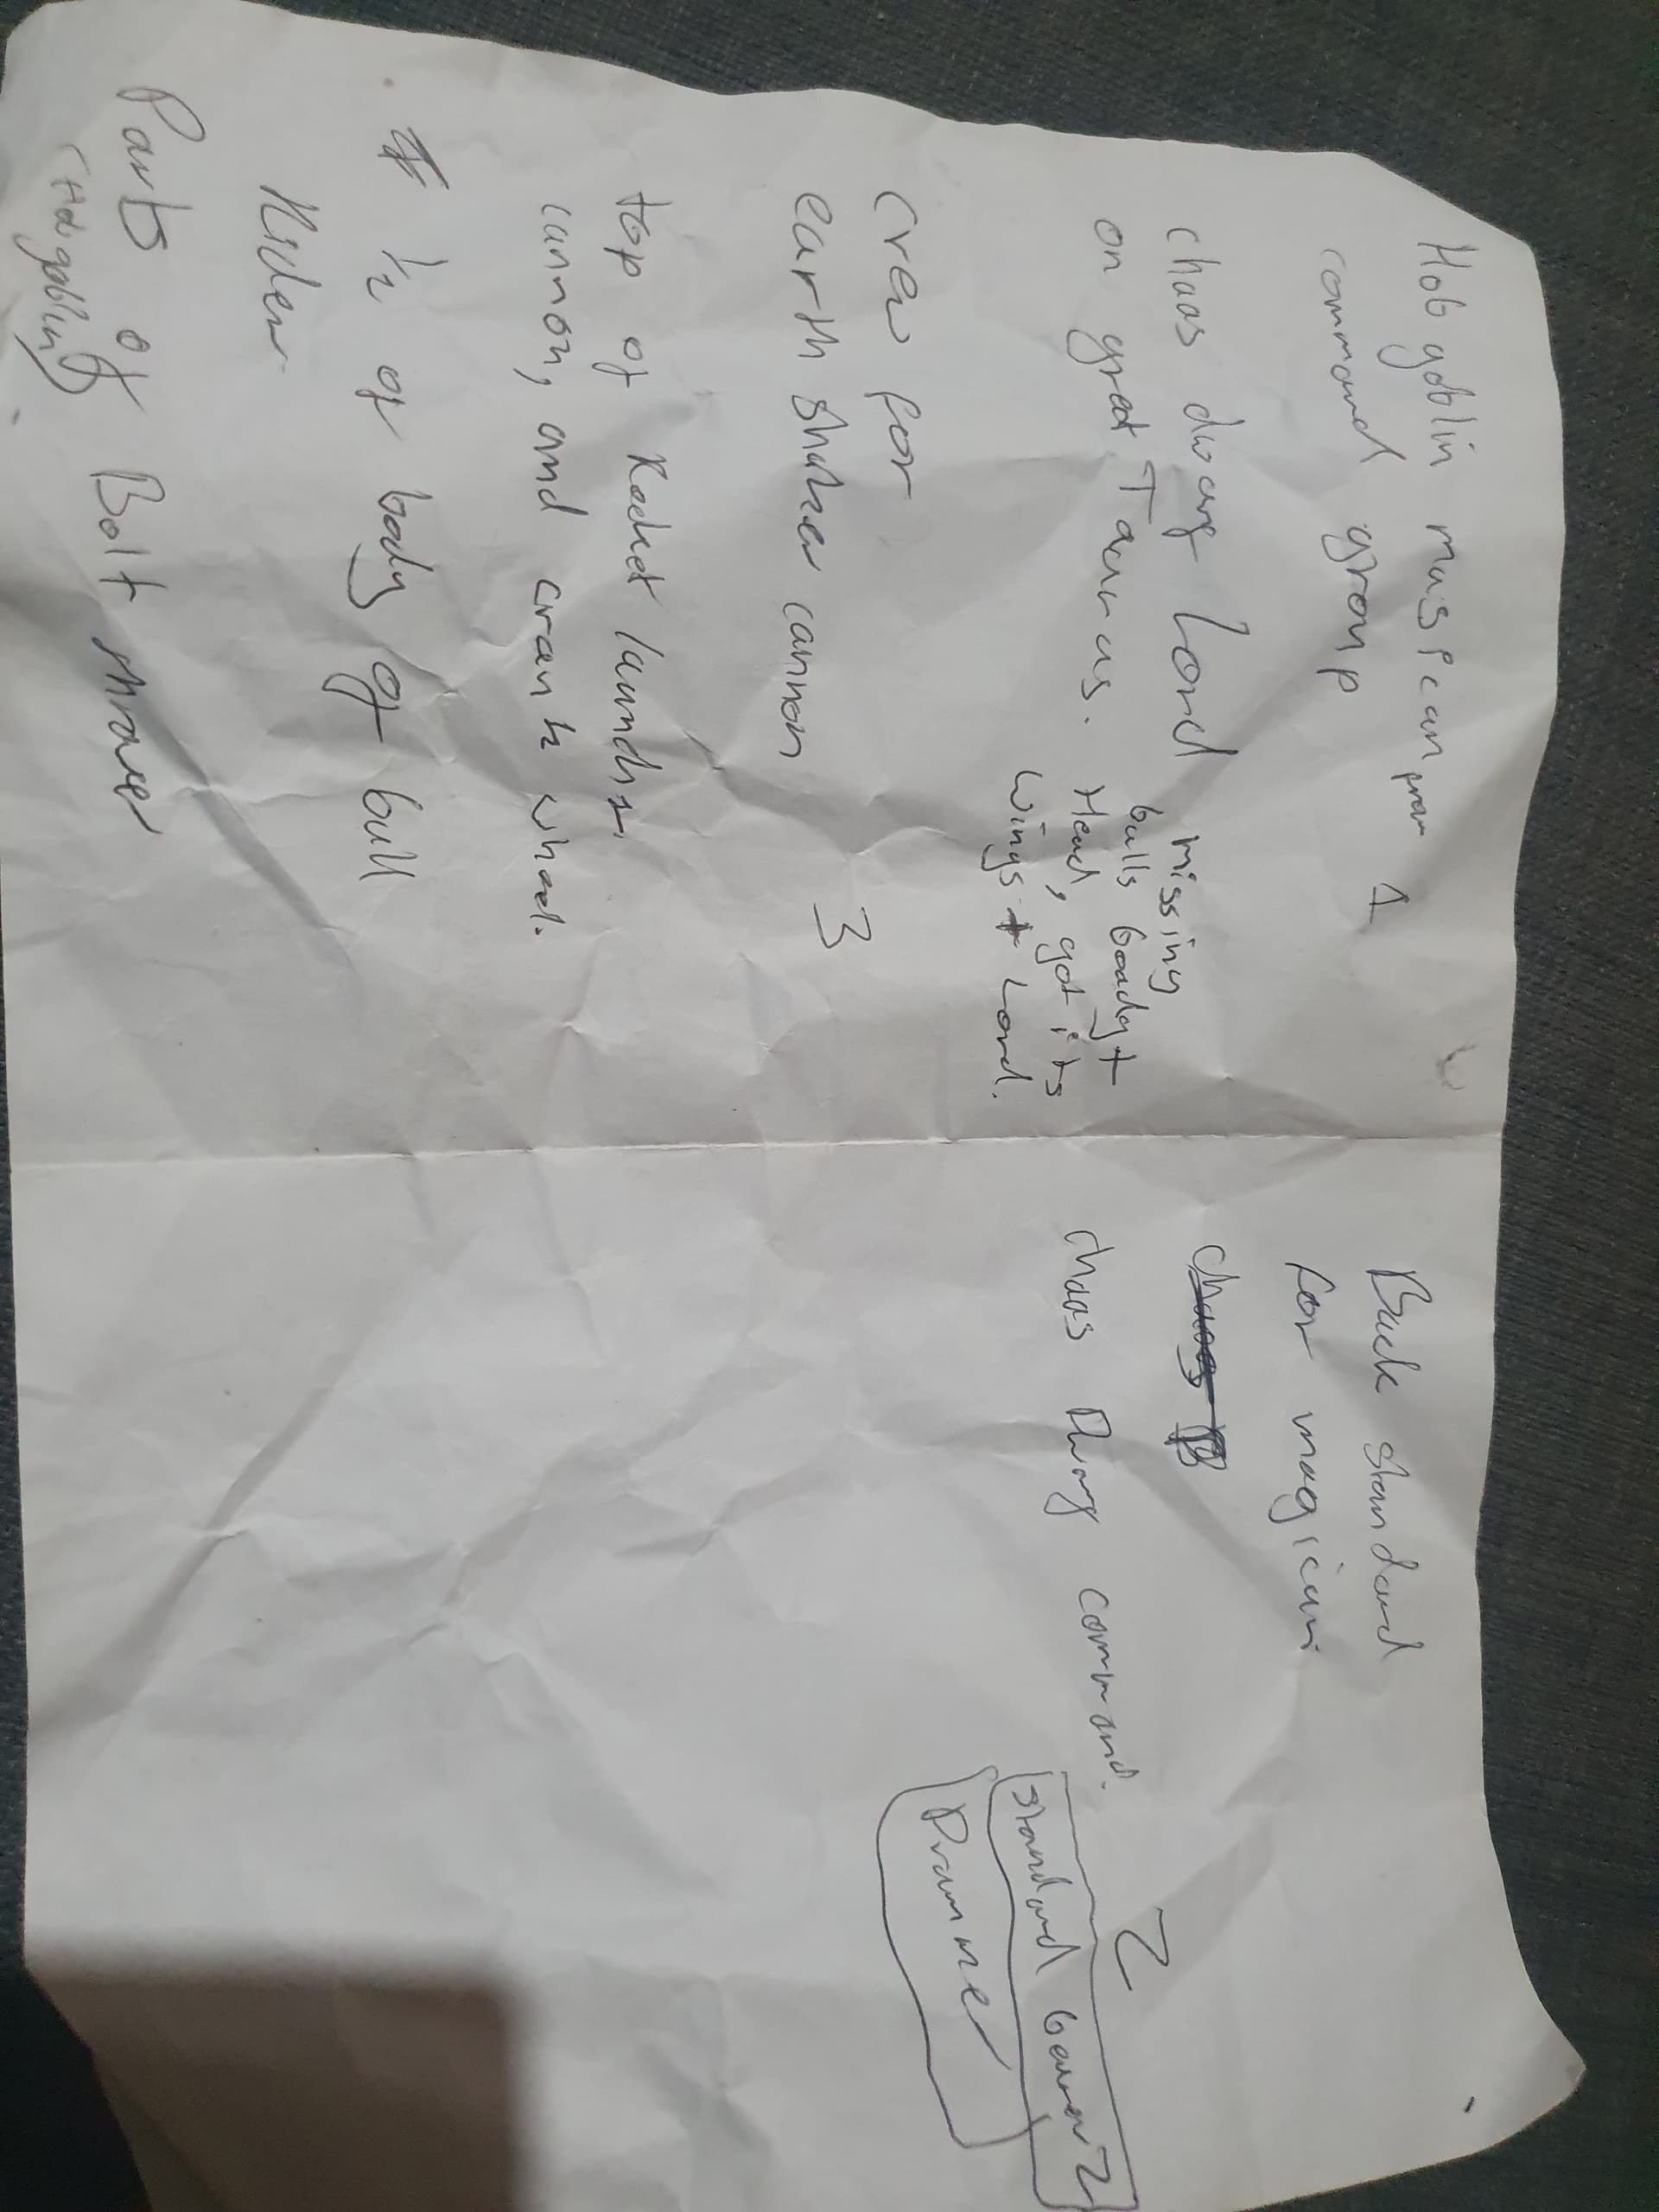 Hobgoblin musician 1
command group
chaos dwarf Lord
on great Taurus.
missing
bulls boady +
Head, got its
wings + Lord.
crew for
earth shaker cannon 3
top of Rocket launcher,
cannon, and crank wheel.
1/2 of body of bull
Rider
Parts of Bolt thrower
(Hobgoblin)
Back standard
for magician
chaos Dwarf command. 2
standard bearer 2
Drummer